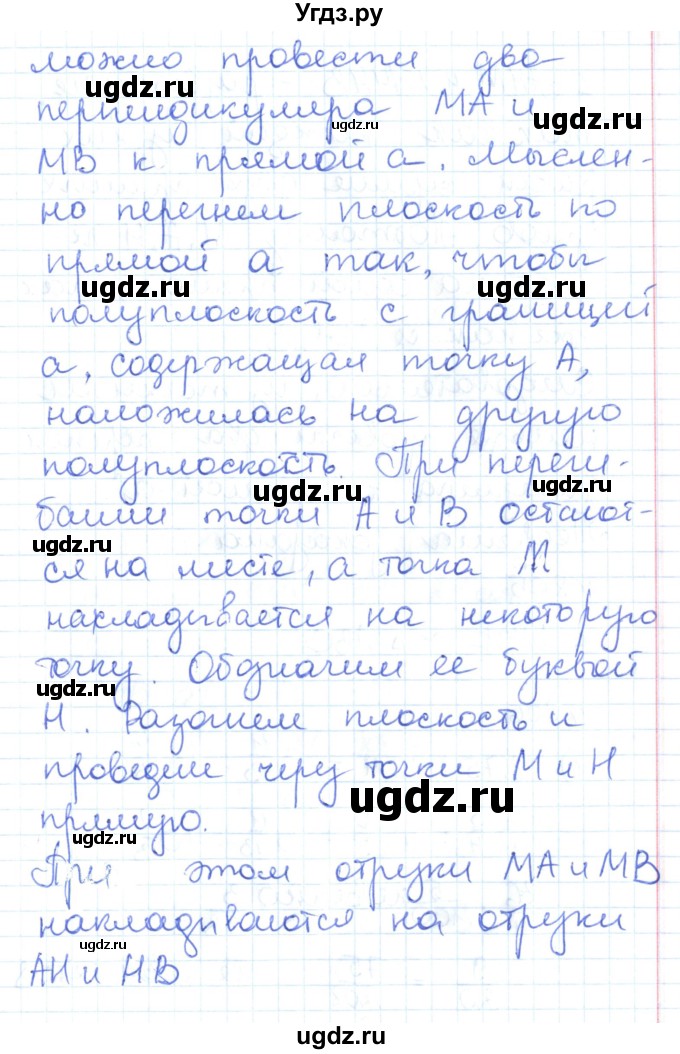 Угдз.ру
можно провести два
ugdz.ru
перпендикуляра МА и
ugdz.ru
ugdz.ru
МВ к прямой а. Мыслен-
но перегнем плоскость по
прямой а так, чтобы
ugdz.ru
ugdz.ru
полуплоскость с границей
а, содержащая точку А,
наложилась на другую
полуплоскость. При переги-
ugdz.ru
ugdz.ru
бании точки А и В остают-
ugdz.ru
ся на месте, а точка М
накладывается на некоторую
точку. Обозначим ее буквой
ugdz.ru
Н. Разогнем плоскость и
проведем через точки М и Н
ugdz.ru
прямую.
ugdz.ru
При этом отрезки МА и МВ
накладываются на отрезки
ugdz.ru
АН и НВ
ugdz.ru